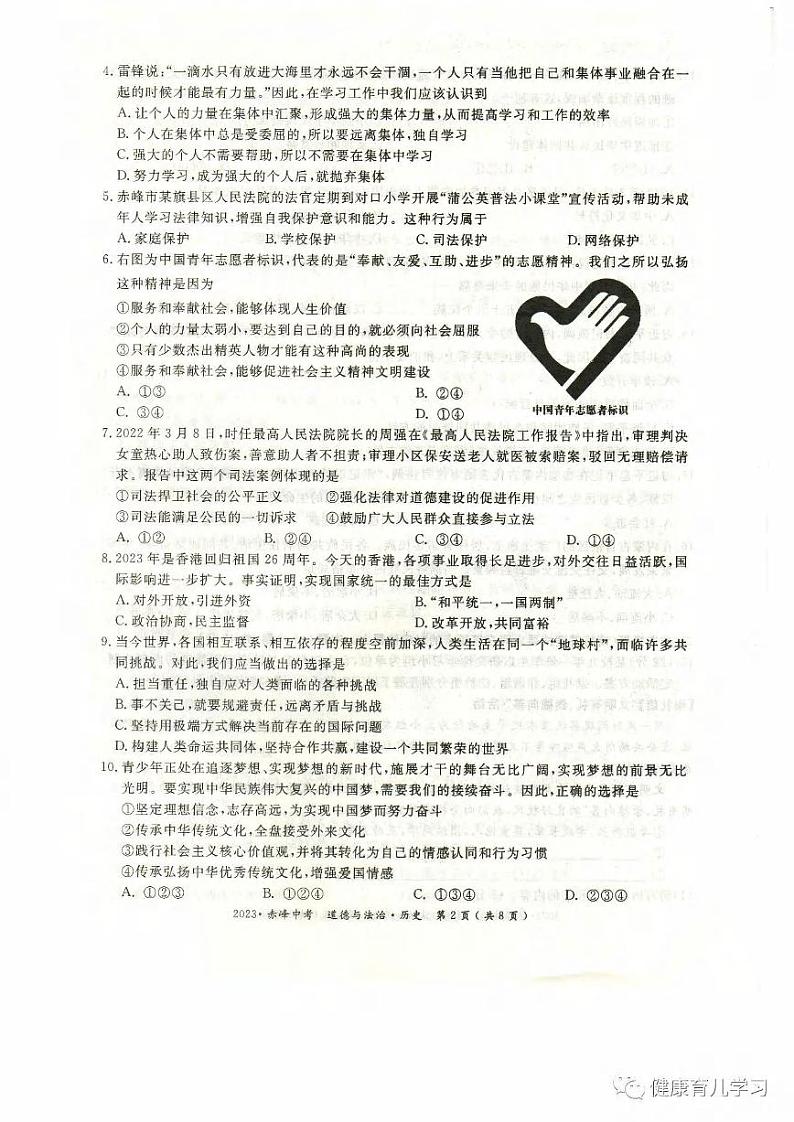 4. 雷锋说:“一滴水只有放进大海里才永远不会干涸,一个人只有当他把自己和集体事业融合在一
起的时候才能最有力量。”因此,在学习工作中我们应该认识到
A. 让个人的力量在集体中汇聚,形成强大的集体力量,从而提高学习和工作的效率
B. 个人在集体中总是受委屈的,所以要远离集体,独自学习
C. 强大的个人不需要帮助,所以不需要在集体中学习
D. 努力学习,成为强大的个人后,就抛弃集体
5. 赤峰市某旗县区人民法院的法官定期到对口小学开展“蒲公英普法小课堂”宣传活动,帮助未成
年人学习法律知识,增强自我保护意识和能力。这种行为属于
A. 家庭保护 B. 学校保护 C. 司法保护 D. 网络保护
6. 右图为中国青年志愿者标识,代表的是“奉献、友爱、互助、进步”的志愿精神。我们之所以弘扬
这种精神是因为
①服务和奉献社会,能够体现人生价值
②个人的力量太弱小,要达到自己的目的,就必须向社会屈服
③只有少数杰出精英人物才能有这种高尚的表现
④服务和奉献社会,能够促进社会主义精神文明建设
A. ①③ B. ②④
C. ③④ D. ①④
中国青年志愿者标识
7. 2022 年 3 月 8 日,时任最高人民法院院长的周强在《最高人民法院工作报告》中指出,审理判决
女童热心助人致伤案,善意助人者不担责;审理小区保安送老人就医被索赔案,驳回无理赔偿请
求。报告中这两个司法案例体现的是
①司法捍卫社会的公平正义 ②强化法律对道德建设的促进作用
③司法能满足公民的一切诉求 ④鼓励广大人民群众直接参与立法
A. ①② B. ②④ C. ③④ D. ①④
8. 2023 年是香港回归祖国 26 周年。今天的香港,各项事业取得长足进步,对外交往日益活跃,国
际影响进一步扩大。事实证明,实现国家统一的最佳方式是
A. 对外开放,引进外资 B. “和平统一,一国两制”
C. 政治协商,民主监督 D. 改革开放,共同富裕
9. 当今世界,各国相互联系、相互依存的程度空前加深,人类生活在同一个“地球村”,面临许多共
同挑战。对此,我们应当做出的选择是
A. 担当重任,独自应对人类面临的各种挑战
B. 事不关己,就要规避责任,远离矛盾与挑战
C. 坚持用极端方式解决当前存在的国际问题
D. 构建人类命运共同体,坚持合作共赢,建设一个共同繁荣的世界
10. 青少年正处在追逐梦想、实现梦想的新时代,施展才干的舞台无比广阔,实现梦想的前景无比
光明。要实现中华民族伟大复兴的中国梦,需要我们的接续奋斗。因此,正确的选择是
①坚定理想信念,志存高远,为实现中国梦而努力奋斗
②传承中华传统文化,全盘接受外来文化
③践行社会主义核心价值观,并将其转化为自己的情感认同和行为习惯
④传承弘扬中华优秀传统文化,增强爱国情感
A. ①②③ B. ①②④ C. ①③④ D. ②③④
2023·赤峰中考 道德与法治·历史 第 2 页(共 8 页)
健康育儿学习